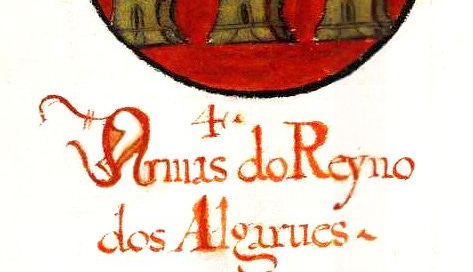 4ª
Armas do Reyno
dos Algarues